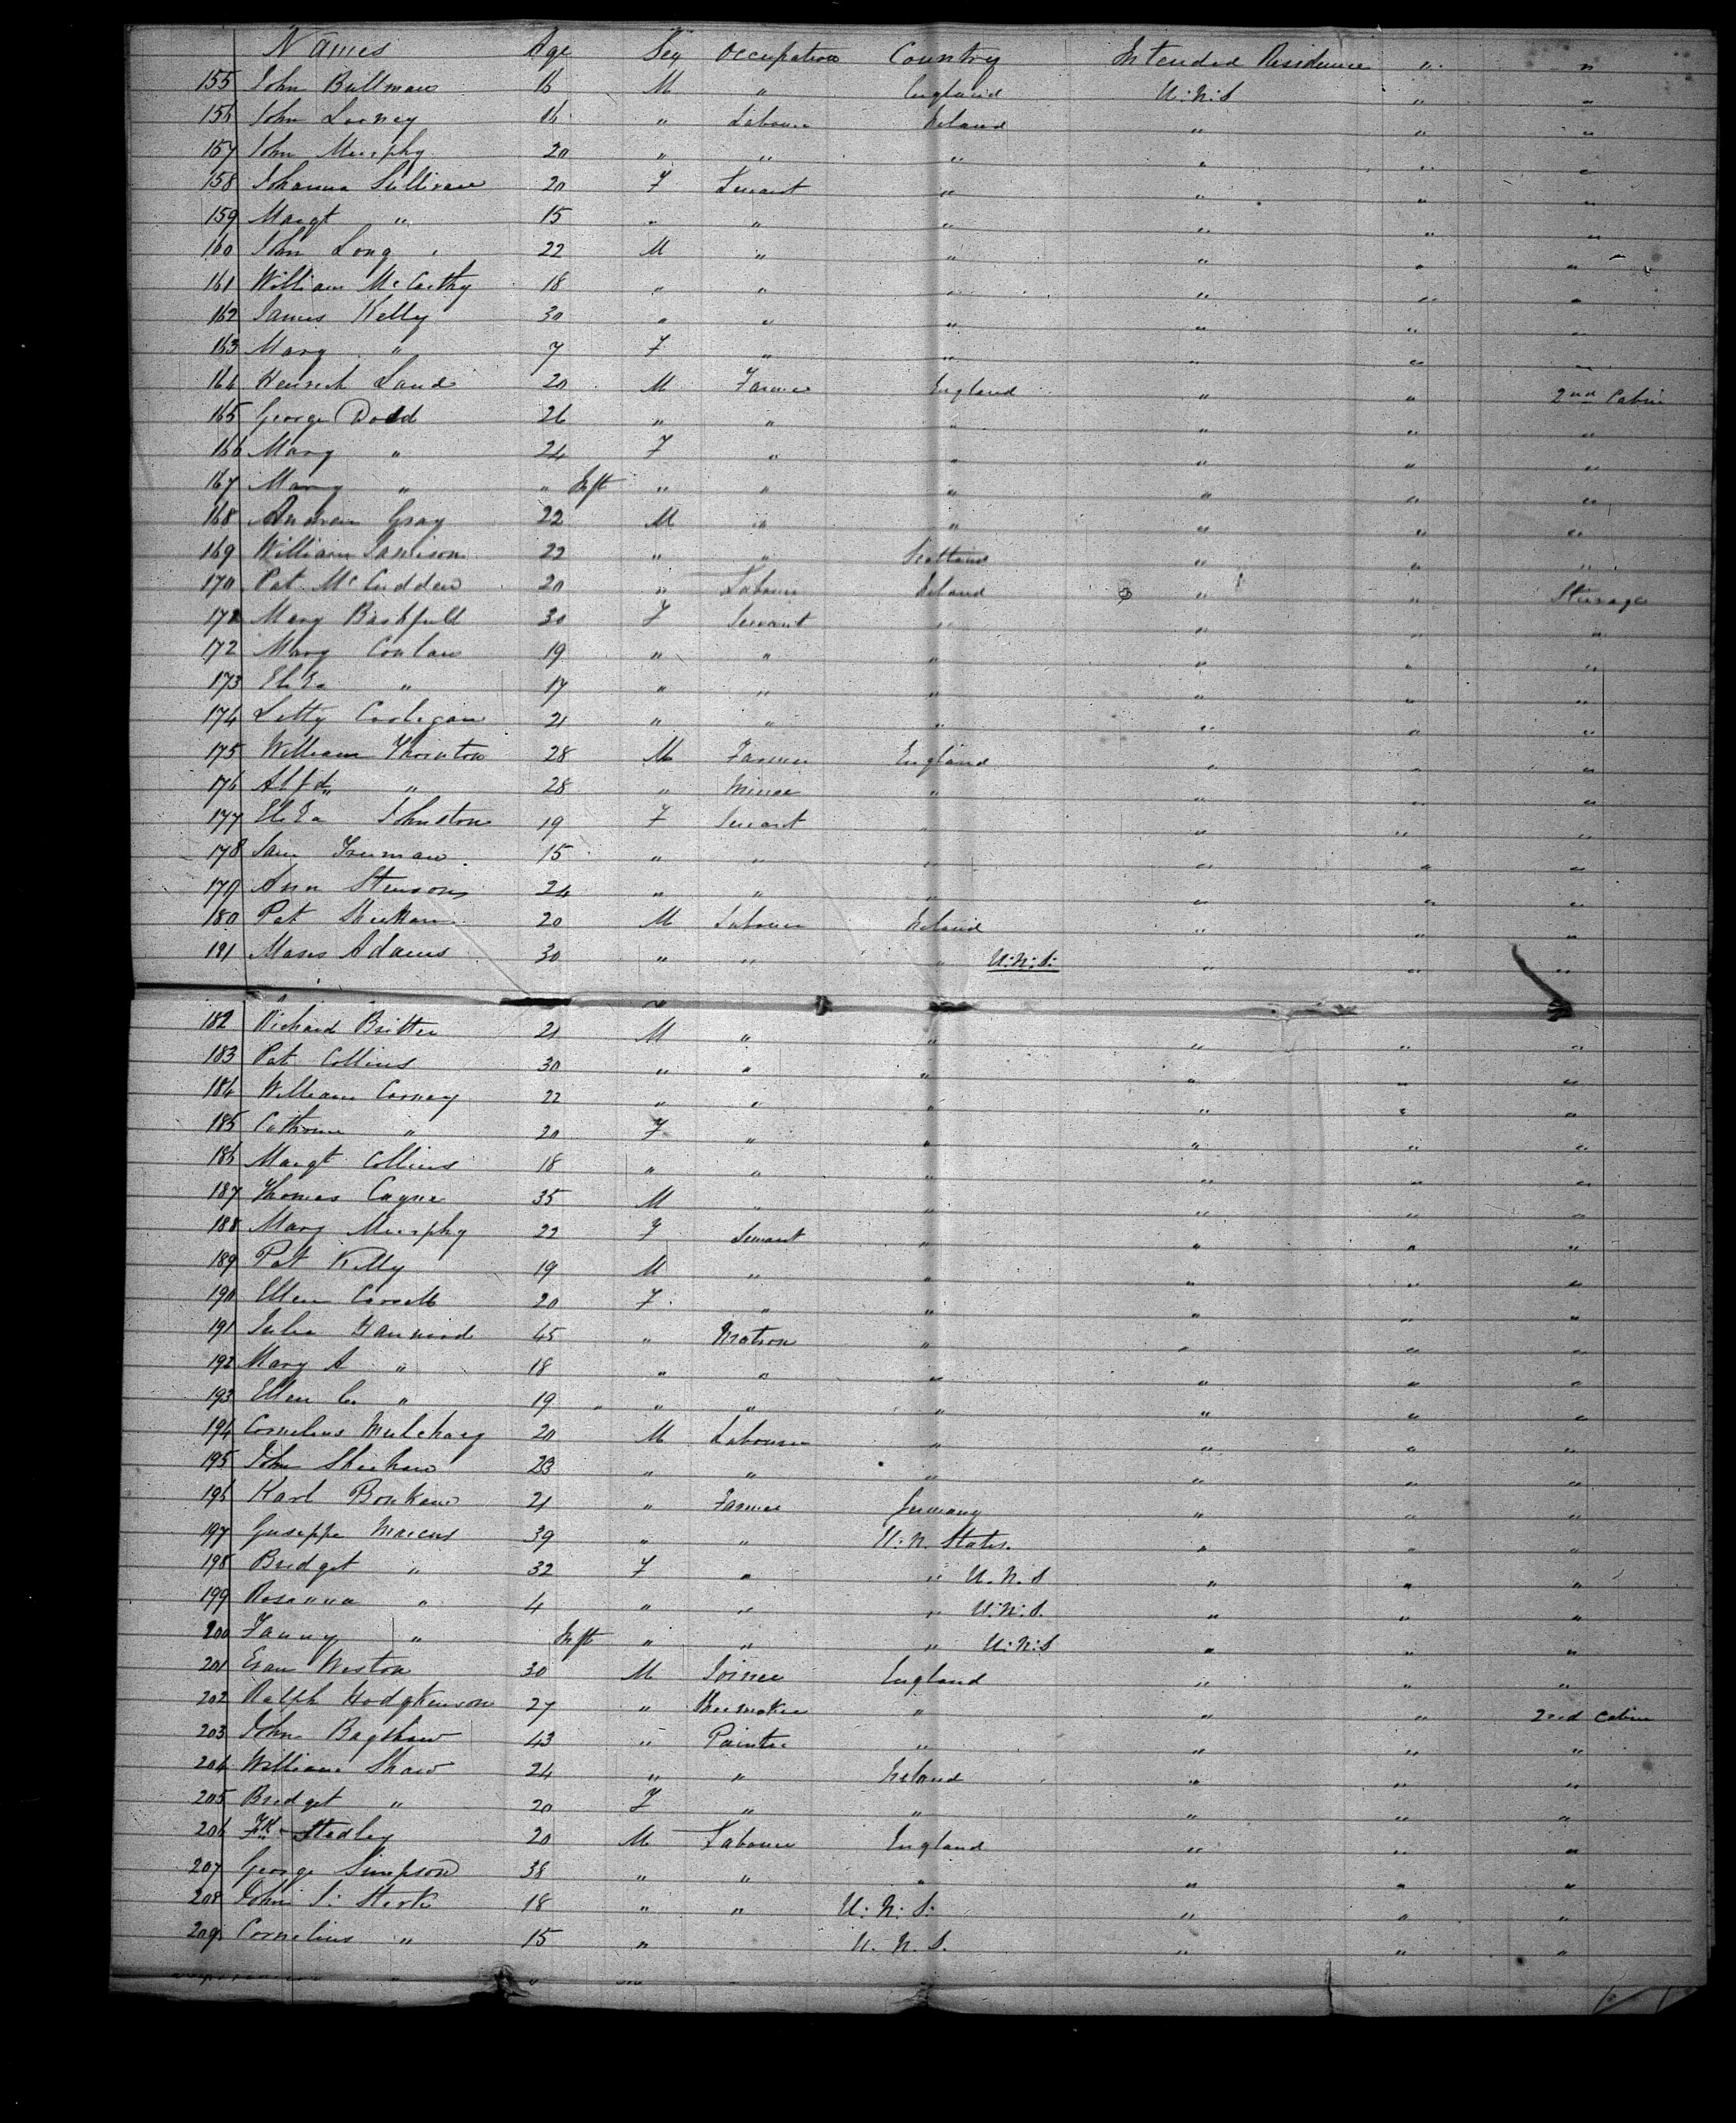 Names Age Sex Occupation Country Intended Residence " "
155 John Bullman 16 M " England U.N.S " "
156 John Looney 16 " Labourer Ireland " " "
157 John Murphy 20 " " " " " "
158 Johanna Sullivan 20 F Servant " " " "
159 Margt " 15 " " " " " "
160 John Long 22 M " " " " "
161 William McCarthy 18 " " " " " "
162 James Kelly 30 " " " " " "
163 Mary " 7 F " " " " "
164 Heinrich Land 20 M Farmer England " " 2nd Cabin
165 George Dodd 26 " " " " " "
166 Mary " 24 F " " " " "
167 Mary " " Inft " " " " " "
168 Andrew Gray 22 M " " " " "
169 William Jamison 22 " " Scotland " " "
170 Pat McCudden 20 " Labourer Ireland " " Steerage
171 Mary Bashfull 30 F Servant " " " "
172 Mary Conlan 19 " " " " " "
173 Eliza " 17 " " " " " "
174 Letty Costegan 21 " " " " " "
175 William Thornton 28 M Farmer England " " "
176 Alfd " 28 " Miner " " " "
177 Eliza Johnston 19 F Servant " " " "
178 Truman 15 " " " " " "
179 Ann Stenson 24 " " " " " "
180 Pat Sheehan 20 M Labourer Ireland " " "
181 Moses Adams 30 " " " U.N.S. " " "
182 Richard Britter 21 M " " " " "
183 Pat Collins 30 " " " " " "
184 William Cooney 22 " " " " " "
185 Catherine " 20 F " " " " "
186 Margt Collins 18 " " " " " "
187 Thomas Coyne 35 M " " " " "
188 Mary Murphy 22 F Servant " " " "
189 Pat Kelly 19 M " " " " "
190 Ellen Carroll 20 F " " " " "
191 Julia Hannard 45 " Matron " " " "
192 Mary A " 18 " " " " " "
193 Ellen C. " 19 " " " " " "
194 Cornelius Mulchaey 20 M Labourer " " " "
195 John Sheehan 23 " " " " " "
196 Karl Bonkam 21 " Farmer Germany " " "
197 Guseppe Marcus 39 " " U.N. States. " " "
198 Bridget " 32 F " " U.N.S " " "
199 Rosanna " 4 " " " U.N.S. " " "
200 Fanny " Inft " " " U.N.S " " "
201 Weston 30 M Joiner England " " "
202 Ralph Hodgkenson 27 " Shoemaker " " " 2nd Cabin
203 John Bagshaw 43 " Painter " " " "
204 William Shaw 24 " " Ireland " " "
205 Bridget " 20 F " " " " "
206 Fk Stedley 20 M Labourer England " " "
207 George Simpson 38 " " " " " "
208 John S. Sterk 18 " " U.N.S. " " "
209 Cornelius " 15 " U.N.S. " " "